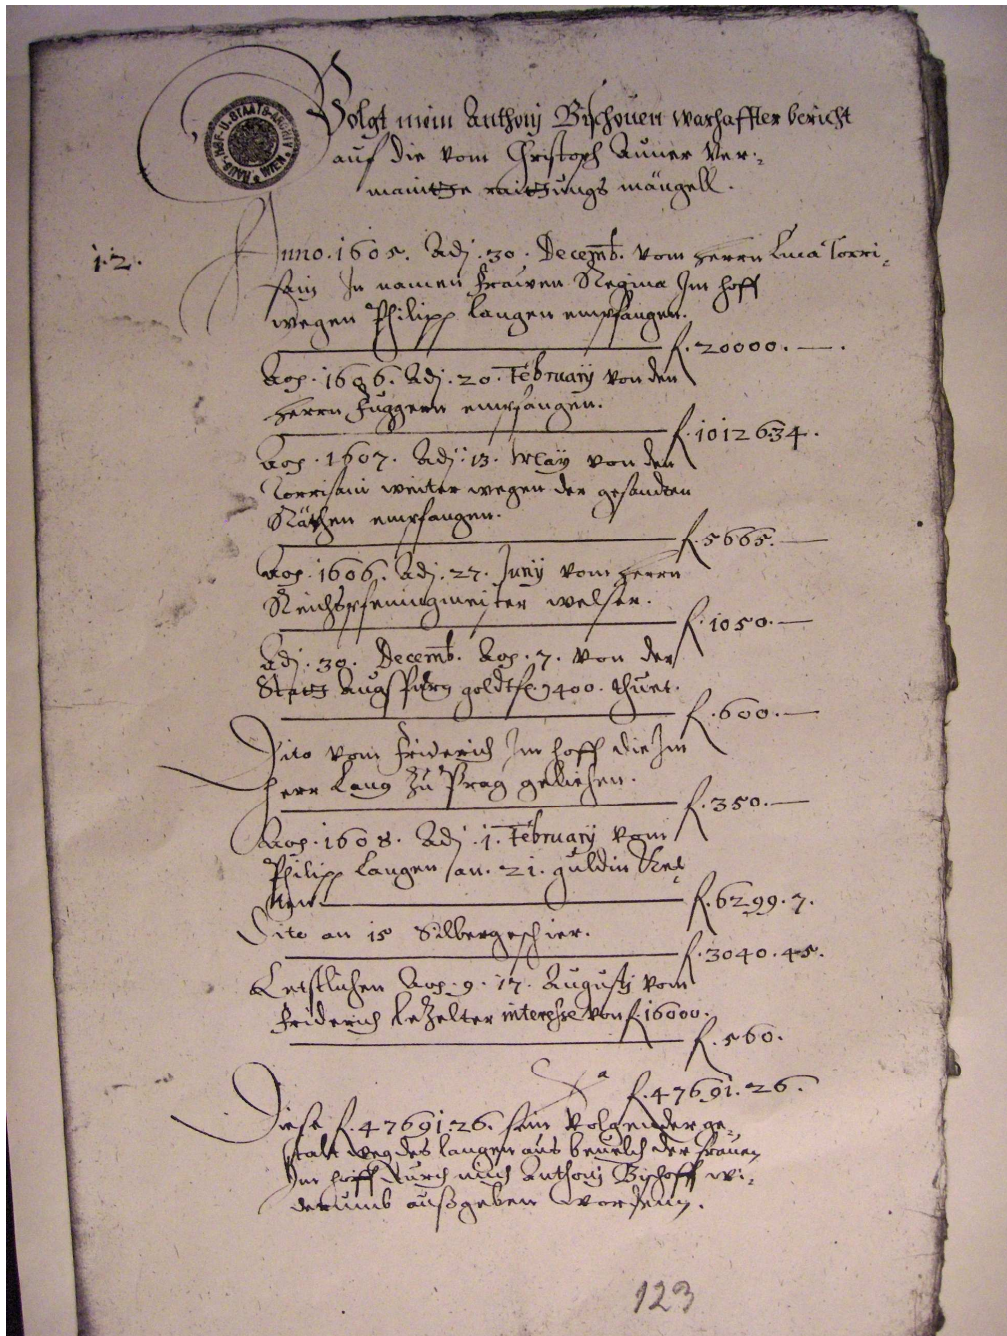 HAUS-, HOF- U. STAATS-ARCHIV WIEN
Volgt mein Anthonj Bischouen warhaffter bericht
auf die vom Christoph Auner Ver:
mainte raittungs mängell.
1.2. Anno. 1605. Adj. 30. Decemb. vom herrn Luca Torri:
sain In namen Frawen Regina Im hoff
wegen Philipp Langen empfangen.
f. 20000. —.
Ao. 1606. Adj. 20. February von den
herrn Fuggern empfangen.
f. 10126 34.
Ao. 1607. Adj. 13. May von den
Torrisani weiter wegen der gesandten
Räthen empfangen.
f. 5665. —
Ao. 1606. Adj. 27. Junij vom herrn
Reichspfeningmeister Welser.
f. 1050. —
Adj. 30. Decemb. Ao. 7. von der
Statt Augspurg goldtfl. 400. thuet.
f. 600. —
Dito vom Friderich Im hoff die Im
herr Lang zu Prag geliehen.
f. 350. —
Ao. 1608. Adj. 1. February vom
Philipp Langen an. 21. guldin Ket
ten
f. 6299. 7.
Dito an 15 Silbergeschier.
f. 3040. 45.
Letstlichen Ao. 9. 17. Augustj vom
Friderich Lezelter interesse von f. 16000.
f. 560.
Sa f. 47691. 26.
Diese f. 47691. 26. sein volgender ge:
stalt weg des Langen aus beuelch der Frauen
Im hoff durch mich Anthonj Bischoff wi:
derumb außgeben worden.
123